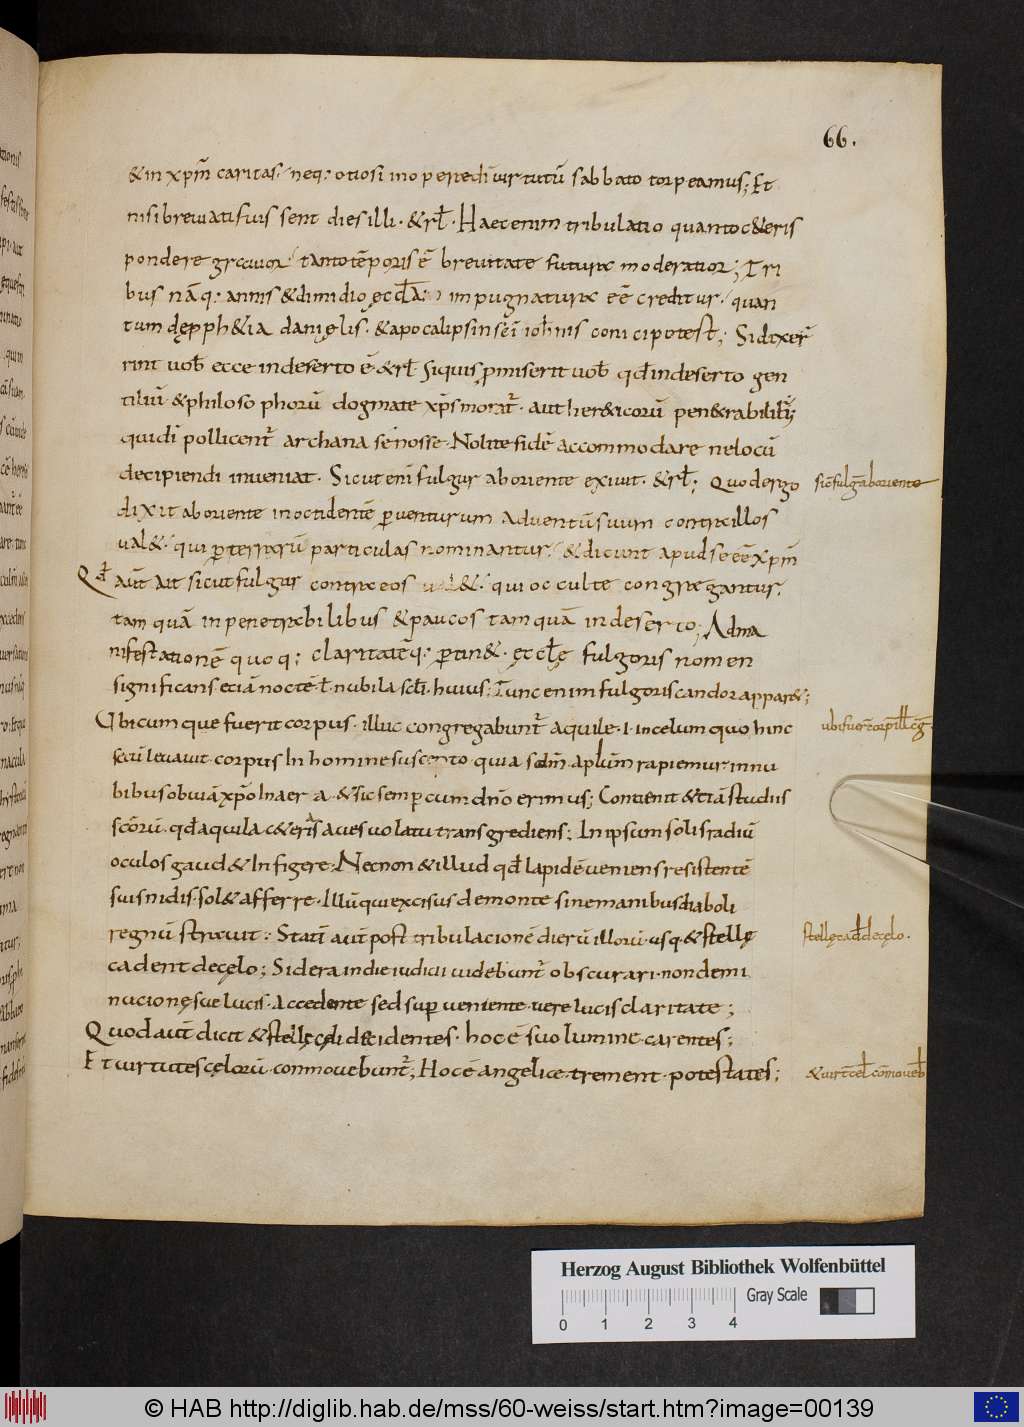 66.
&in xpm̄ caritas; neq; otiosi inoperiedi uirtutū sabbato torpeamus; Et
nisi breuiati fuis sent dies illi · &rł · Haec enim tribulatio quanto c&eris
pondere grauior tanto tēporis ē breuitate futura moderatior; Tri
bus nāq; annis & dimidio ęccła impugnatura eē creditur / quan
tum dęp ph&ia danięlis · & apocalipsin sc̄i ioh̄nis conici potest; Si dixer̄
rint uob̄ ecce in deserto ē &rł Siquis pmiserit uob̄ qđ in deserto gen
tiliū & philosophorū dogmate xp̄s morat̄ · aut her&icorū pen&rabilib;
qui di pollicent̄ archana se nosse · Nolite fidē accommodare ne locū
decipiendi inueniat · Sicut eni fulgur ab oriente exiuit · &rł; Quod ergo
sic̄ fulḡ ab oriente
dixit ab oriente in occidentē p̱uenturum aduentū suum contra illos
ual& · qui p̱ terrarū particulas nominantur / & dicunt apud se eē xpm̄
Qđ aūt ait sicut fulgur contra eos ual& · qui occulte congregantur
tam quā in penetrabilibus & paucos tam quā in deserto; Ad ma
nifestationē quoq; claritatēq; p̱tin& · ęccłę fulgoris nomen
significans eciā noctē ł nubila scłi · huius; Tunc enim fulgoris candor appar&;
Ubicumque fuerit corpus · illuc congregabunt̄ aquile · i · in celum quo hinc
ubi fuer̄ corp̄ ill̄ cḡ
secū leuauit · corpus In homine suscepto quia scdm̄ aplūm rapiemur in nu
bibus obuiā xp̄o In aera · & sic semp cum dn̄o erimus; Conuenit & ciā studiis
sc̄orū · qđ aquila c&eris aues uolatu transgrediens; In ipsum solis radiū
oculos gaud& Infigere · Nec non & illud qđ lapidē ueniens resistentē
suis nidis · sol& afferre · Illū qui excisus de monte sine manibus diaboli
regnū strauit : Statī aūt post tribulacionē dierū illorū usq & stellę
stellę cad̄ de cęlo ·
cadent de cęlo; Sidera in die iudicii uidebunt̄ obscurari · non demi
nucione suę lucis · Accedente sed sup̱ueniente uere lucis claritate;
Quod aūt dicit & stellę cęli decidentes · hoc ē suo lumine carentes;
Et uirtutes cęlorū commouebunt̄; Hoc ē angelice trement potestates;
& uirt̄ cel̄ cōmoueb̄
Herzog August Bibliothek Wolfenbüttel
Gray Scale
0 1 2 3 4
© HAB http://diglib.hab.de/mss/60-weiss/start.htm?image=00139